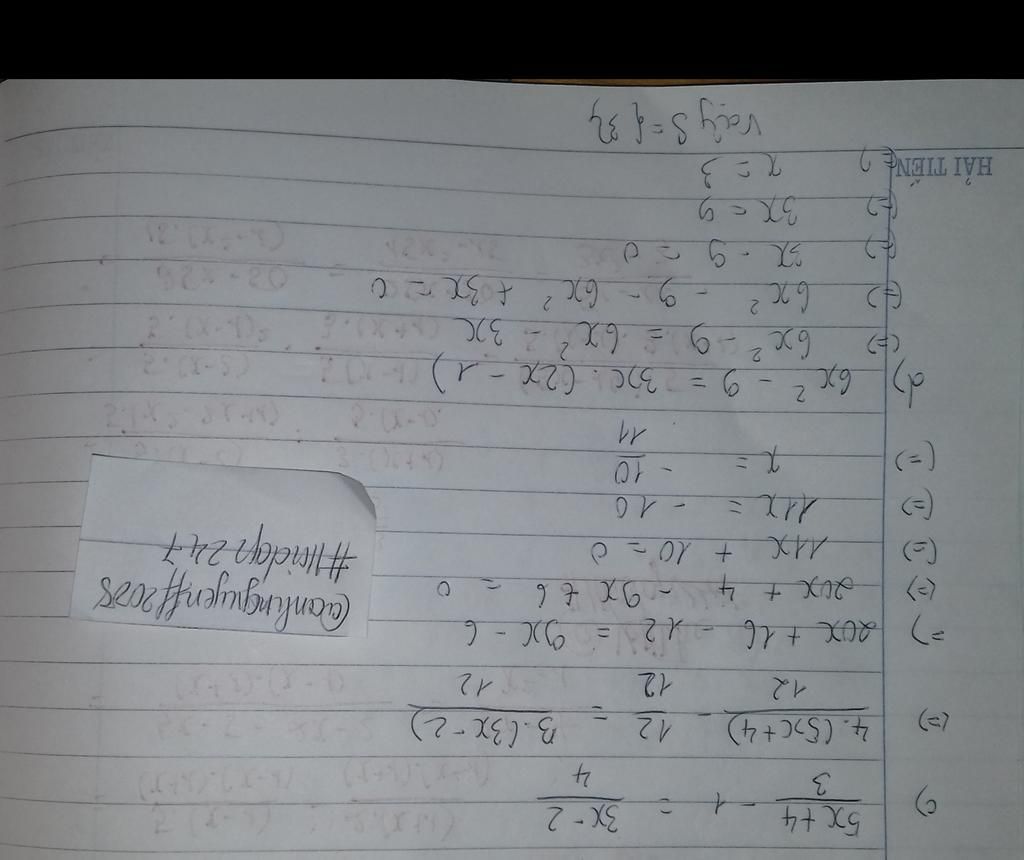 c) (5x+4)/3 - 1 = (3x-2)/4
(=) 4.(5x+4)/12 - 12/12 = 3.(3x-2)/12
=) 20x + 16 - 12 = 9x - 6
(=) 20x + 4 - 9x + 6 = 0
(=) 11x + 10 = 0
(=) 11x = - 10
(=) x = - 10/11
d) 6x² - 9 = 3x.(2x - 1)
(=) 6x² - 9 = 6x² - 3x
(=) 6x² - 9 - 6x² + 3x = 0
(=) 3x - 9 = 0
(=) 3x = 9
(=) x = 3
Vậy S = {3}
HẢI TIẾN
@anhnguyen#2028
#Hoidap247